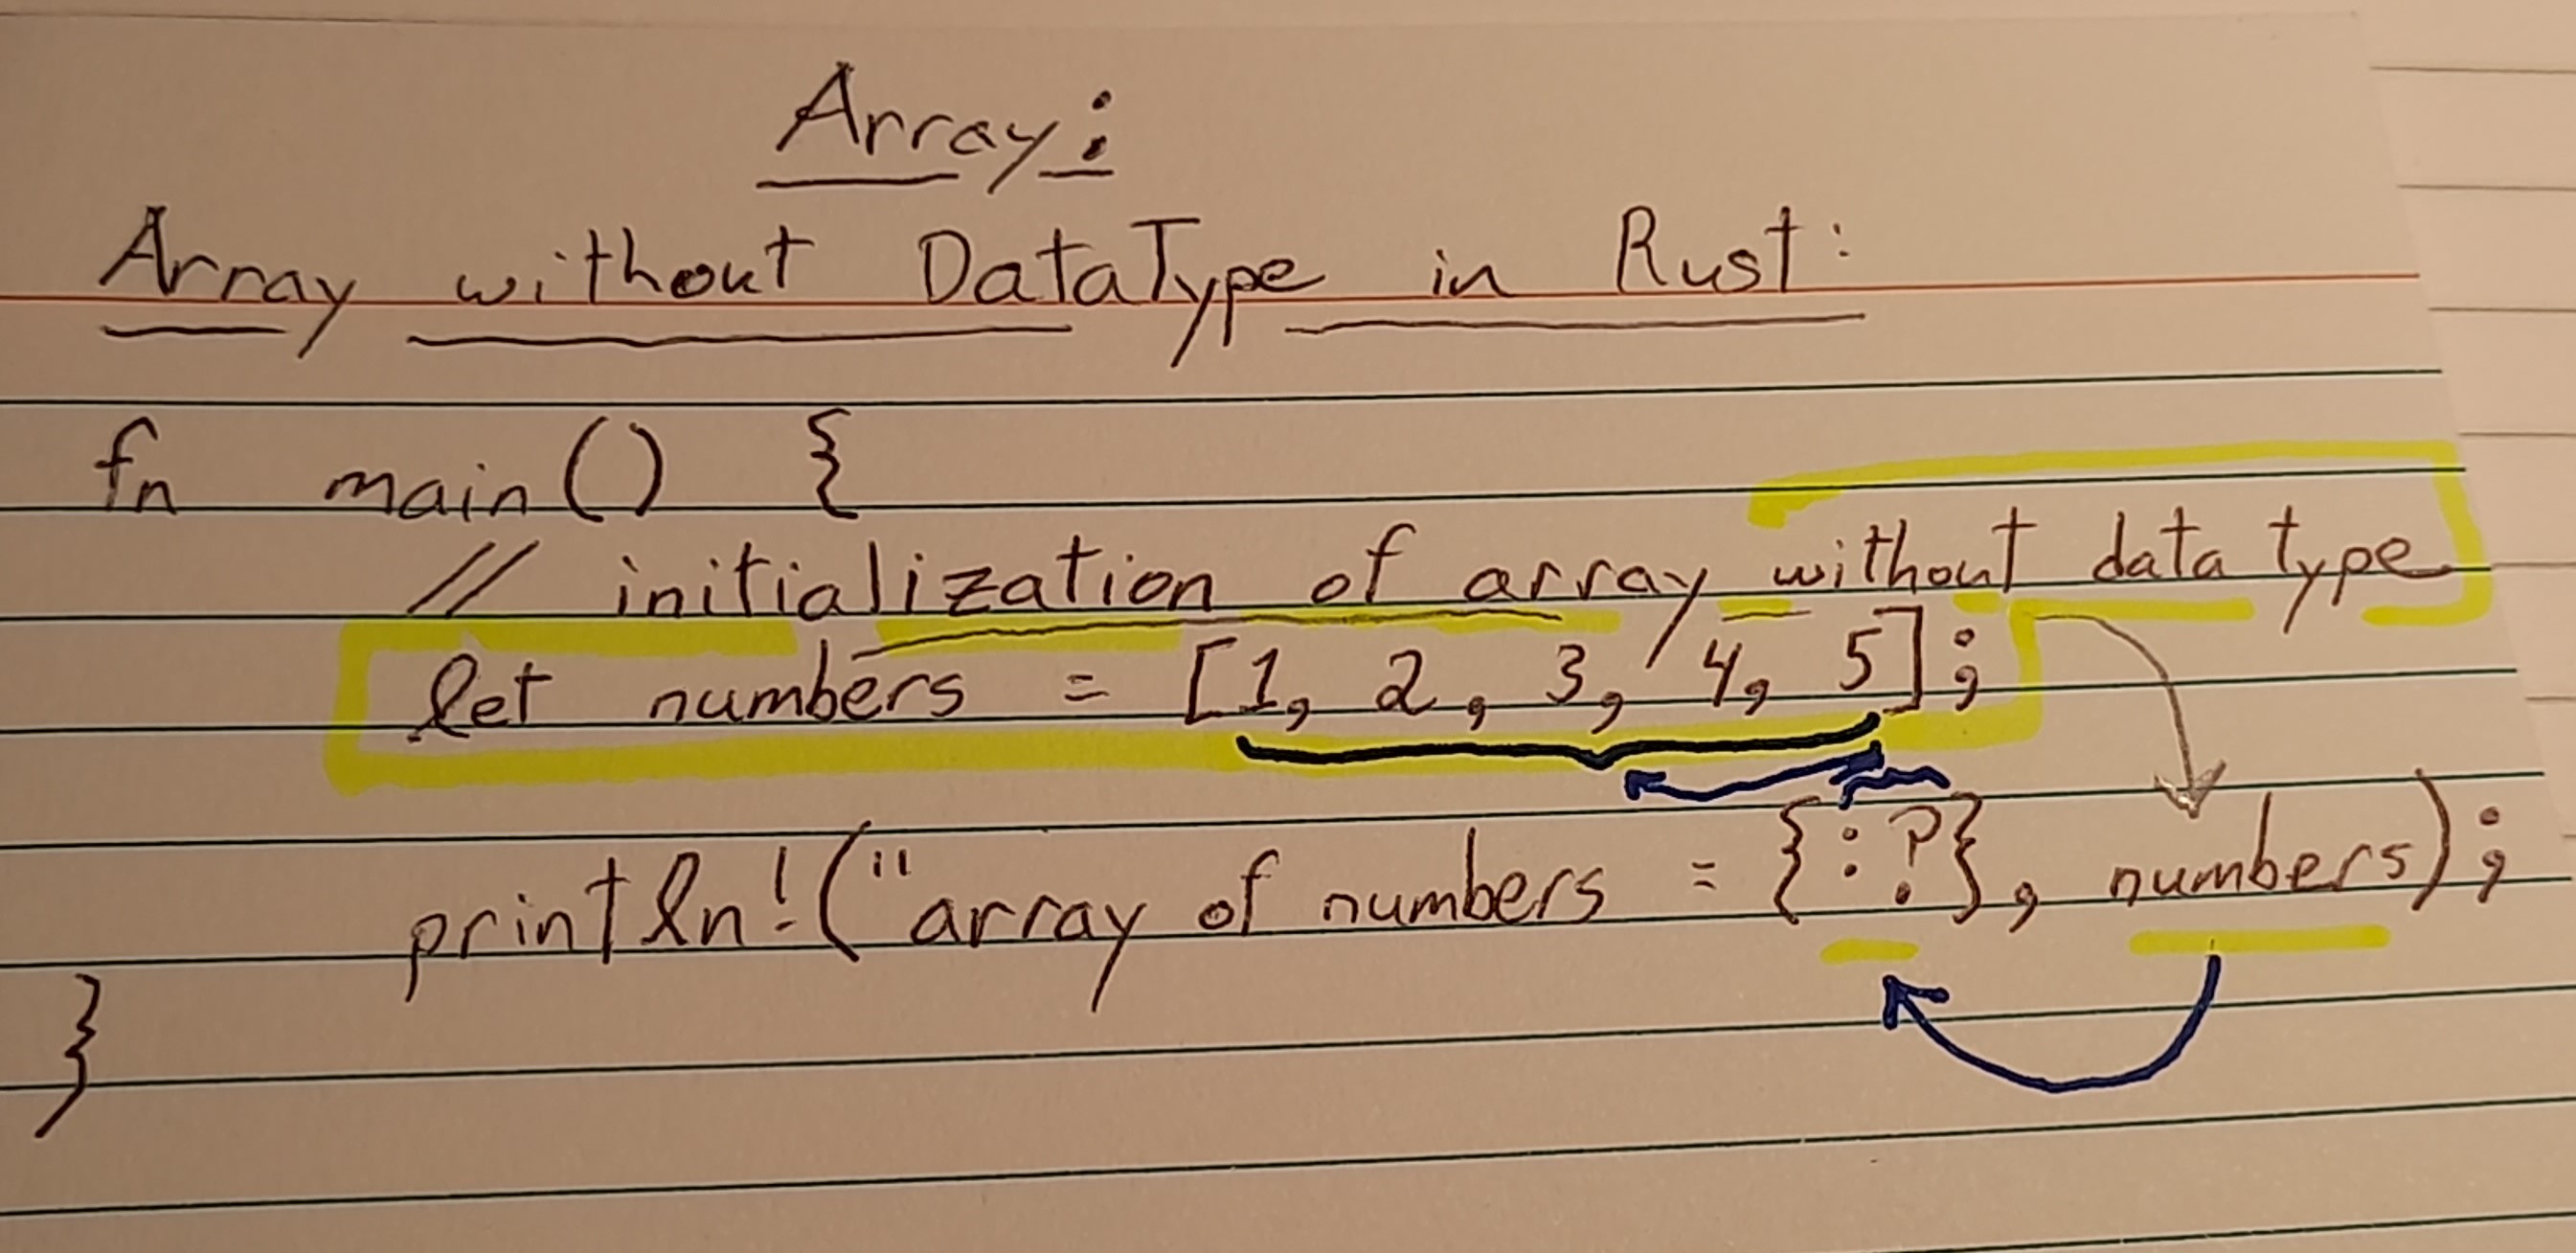 Array:
Array without DataType in Rust:
fn main() {
// initialization of array without data type
let numbers = [1, 2, 3, 4, 5];
println!("array of numbers = {:?}, numbers);
}